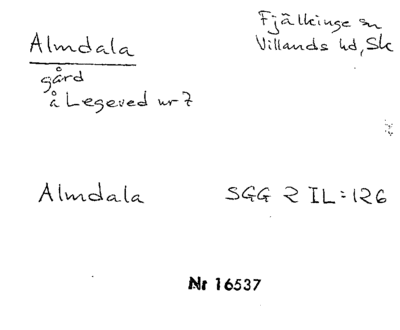 Almdala
gård
å Legeved nr 7
Fjälkinge sn
Villands hd, Sk
Almdala
SGG 2 IL:126
Nr 16537